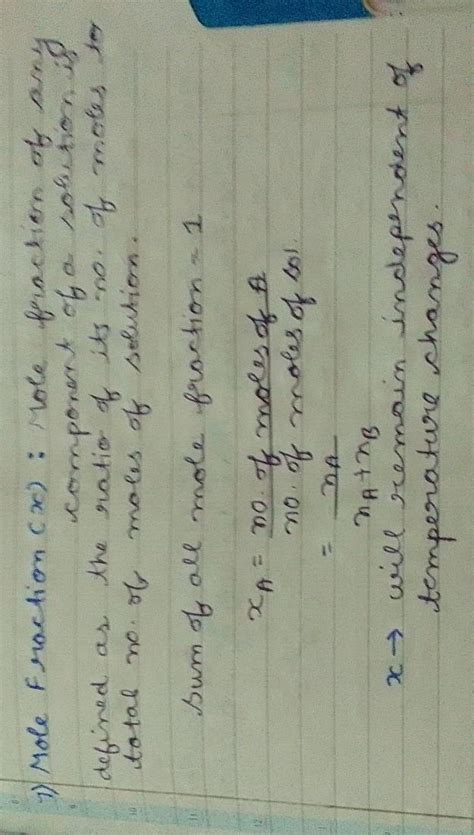 7) Mole Fraction (x) : Mole fraction of any
component of a solution is
defined as the ratio of its no. of moles to
total no. of moles of solution.
sum of all mole fraction = 1
x_A = no. of moles of A
no. of moles of sol
= n_A
n_A + n_B
x → will remain independent of
temperature changes.